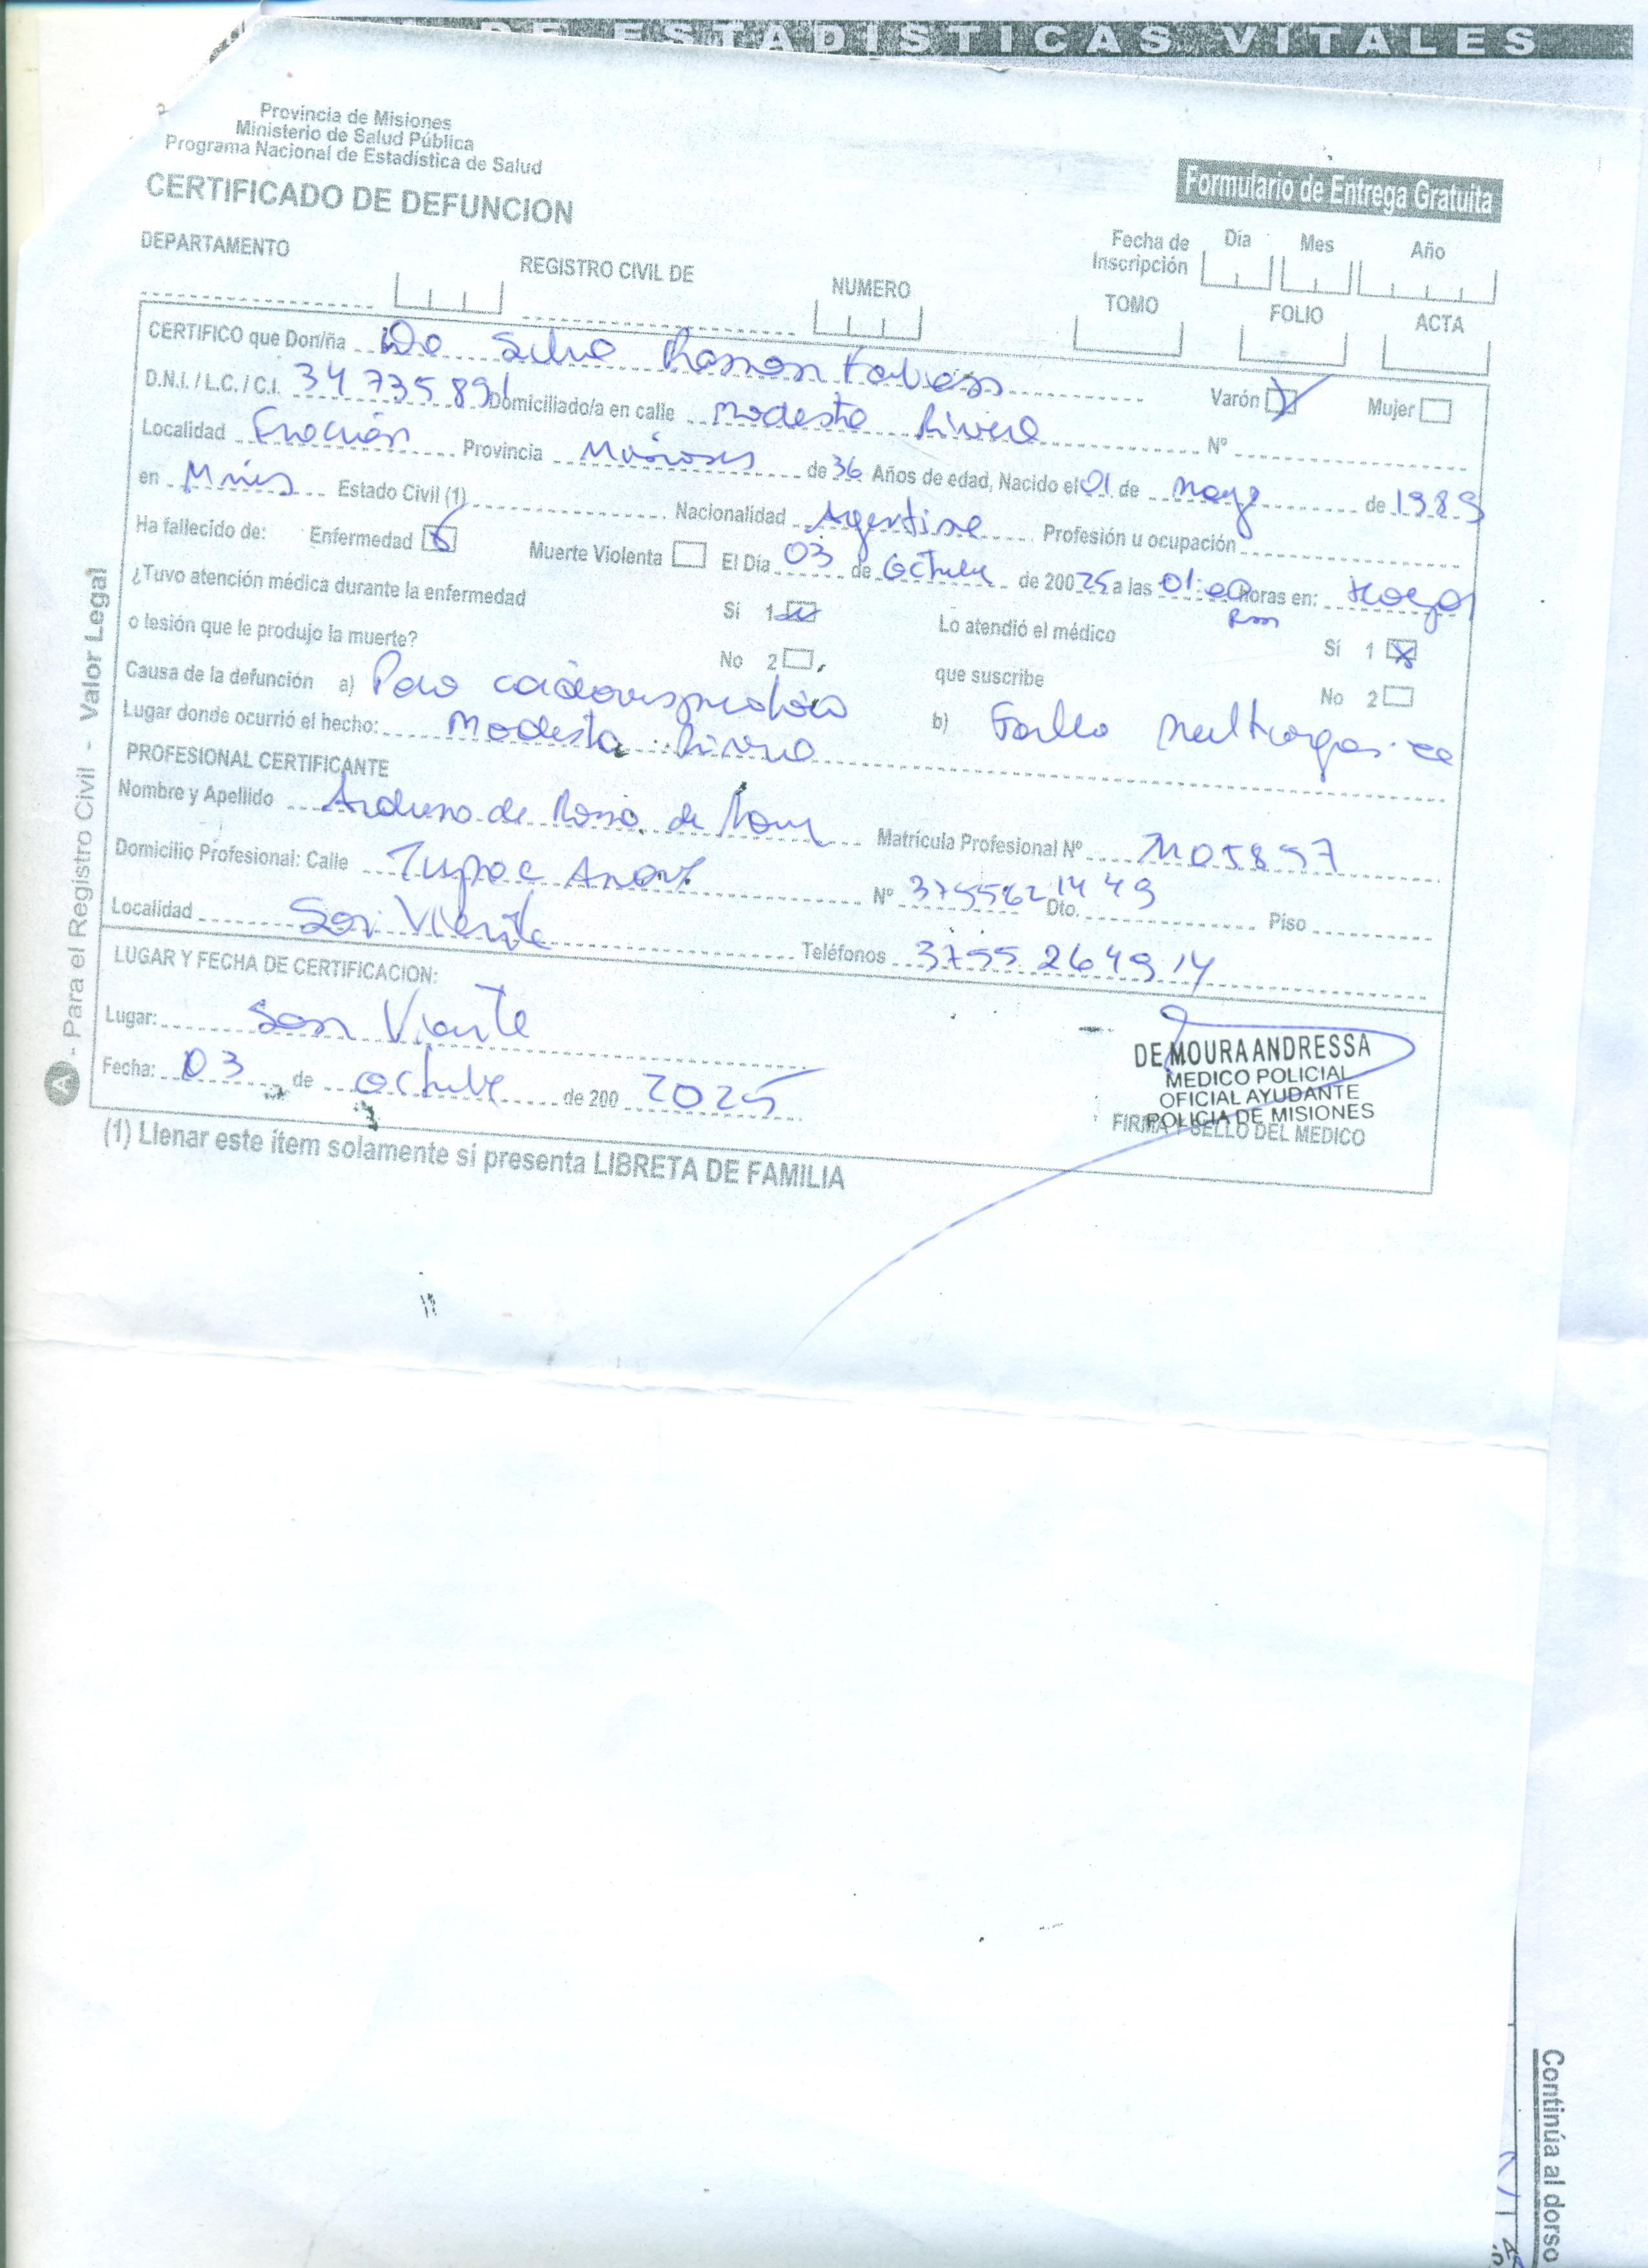 DE ESTADISTICAS VITALES
Provincia de Misiones
Ministerio de Salud Pública
Programa Nacional de Estadística de Salud
CERTIFICADO DE DEFUNCION
Formulario de Entrega Gratuita
DEPARTAMENTO
REGISTRO CIVIL DE
NUMERO
Fecha de Inscripción Día Mes Año
TOMO FOLIO ACTA
CERTIFICO que Don/ña Da Silva Ramon Fabian
Varón Mujer
D.N.I. / L.C. / C.I. 34 735 891 Domiciliado/a en calle Modesta Rivero Nº
Localidad Provincia Misiones de 36 Años de edad, Nacido el 01 de mayo de 1989
en Mnes Estado Civil (1) Nacionalidad Argentina Profesión u ocupación
Ha fallecido de: Enfermedad Muerte Violenta El Día 03 de octubre de 200 25 a las 01:00 horas en: Hogar
¿Tuvo atención médica durante la enfermedad
o lesión que le produjo la muerte?
Sí 1
No 2
Lo atendió el médico
que suscribe
Sí 1
No 2
Causa de la defunción a) Paro cardiorrespiratorio b) Falla multiorganica
Lugar donde ocurrió el hecho: Modesta Rivero
PROFESIONAL CERTIFICANTE
Nombre y Apellido de Rosa de Matrícula Profesional Nº M05897
Domicilio Profesional: Calle Tupac Nº 3755621449 Dto. Piso
Localidad San Vicente Teléfonos 3755 264914
LUGAR Y FECHA DE CERTIFICACION:
Lugar: San Vicente
Fecha: 03 de octubre de 200 2025
DE MOURA ANDRESSA
MEDICO POLICIAL
OFICIAL AYUDANTE
POLICIA DE MISIONES
FIRMA Y SELLO DEL MEDICO
(1) Llenar este ítem solamente si presenta LIBRETA DE FAMILIA
A - Para el Registro Civil - Valor Legal
Continúa al dorso